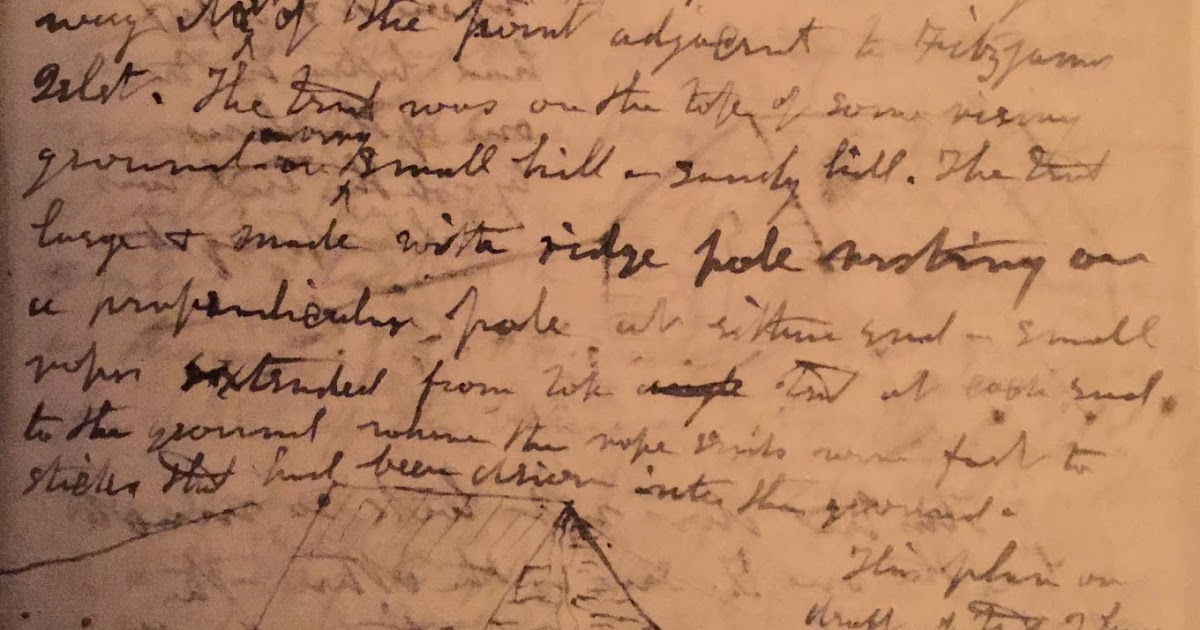 way N of the point adjacent to Fitzjames
Islet. The tent was on the top of some rising
ground or ^ among small hill - sandy hill. The tent
large & made with ridge pole resting on
a perpendicular pole at either end - small
ropes extended from top tent at each end
to the ground where the rope ends were fast to
sticks that had been driven into the ground -
This plan or
draft of Tent I have